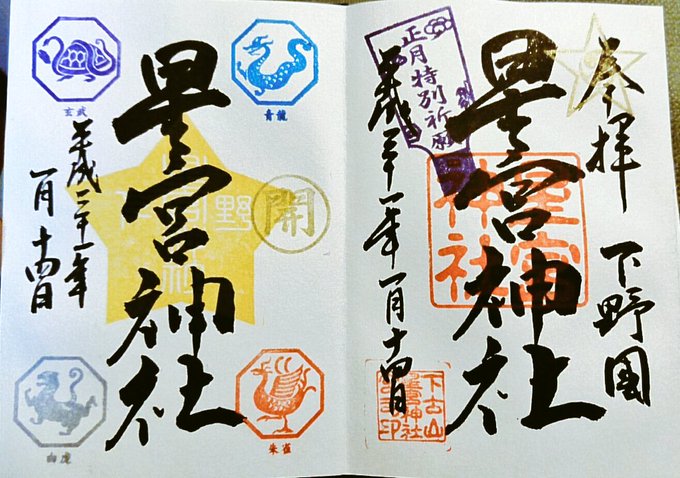 奉拝 下野國
星宮神社
正月特別祈願
平成三十一年一月十四日
星宮
神社
下古山
星宮神社
之印
青龍
星宮神社
開
朱雀
玄武
平成三十一年
一月十四日
白虎